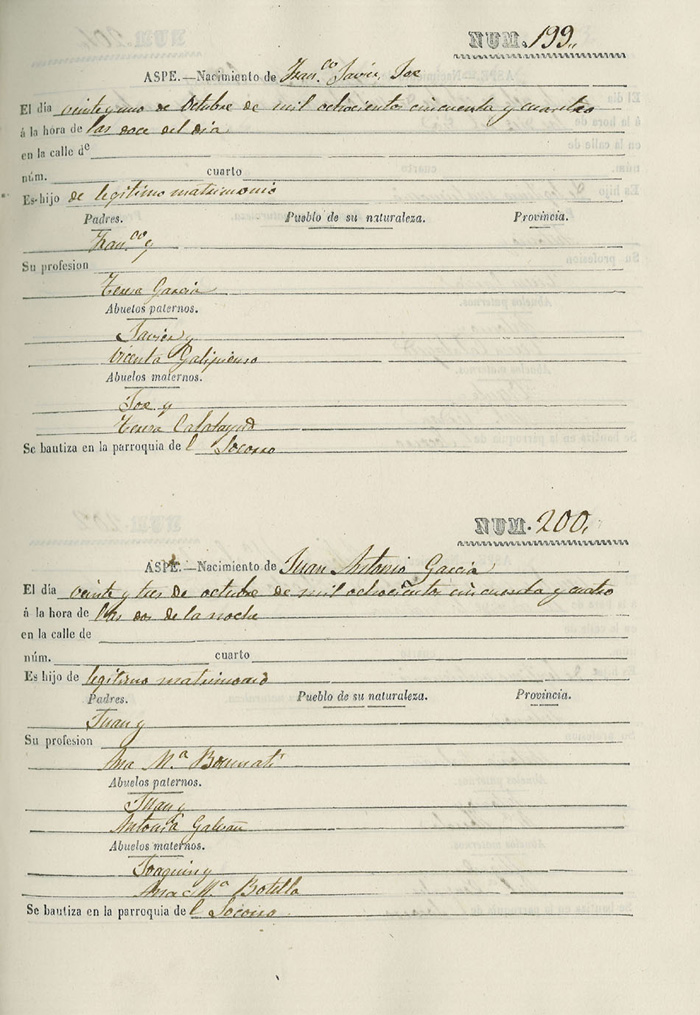 NUM. 199.
ASPE.—Nacimiento de Fran.co Javier Jose
El dia veinte y uno de Octubre de mil ochocientos cincuenta y cuatro
á la hora de las doce del dia
en la calle de
núm. cuarto
Es hijo de legitimo matrimonio
Padres. Pueblo de su naturaleza. Provincia.
Fran.co y
Su profesion
Teresa Garcia
Abuelos paternos.
Javier y
Vicenta Galipienso
Abuelos maternos.
Jose y
Teresa Calatayud
Se bautiza en la parroquia del Socorro
NUM. 200.
ASPE.—Nacimiento de Juan Antonio Garcia
El dia veinte y tres de octubre de mil ochocientos cincuenta y cuatro
á la hora de las dos de la noche
en la calle de
núm. cuarto
Es hijo de legitimo matrimonio
Padres. Pueblo de su naturaleza. Provincia.
Juan y
Su profesion
Ana M.a
Abuelos paternos.
Juan y
Antonia Galvañ
Abuelos maternos.
Joaquin y
Ana M.a Botella
Se bautiza en la parroquia del Socorro